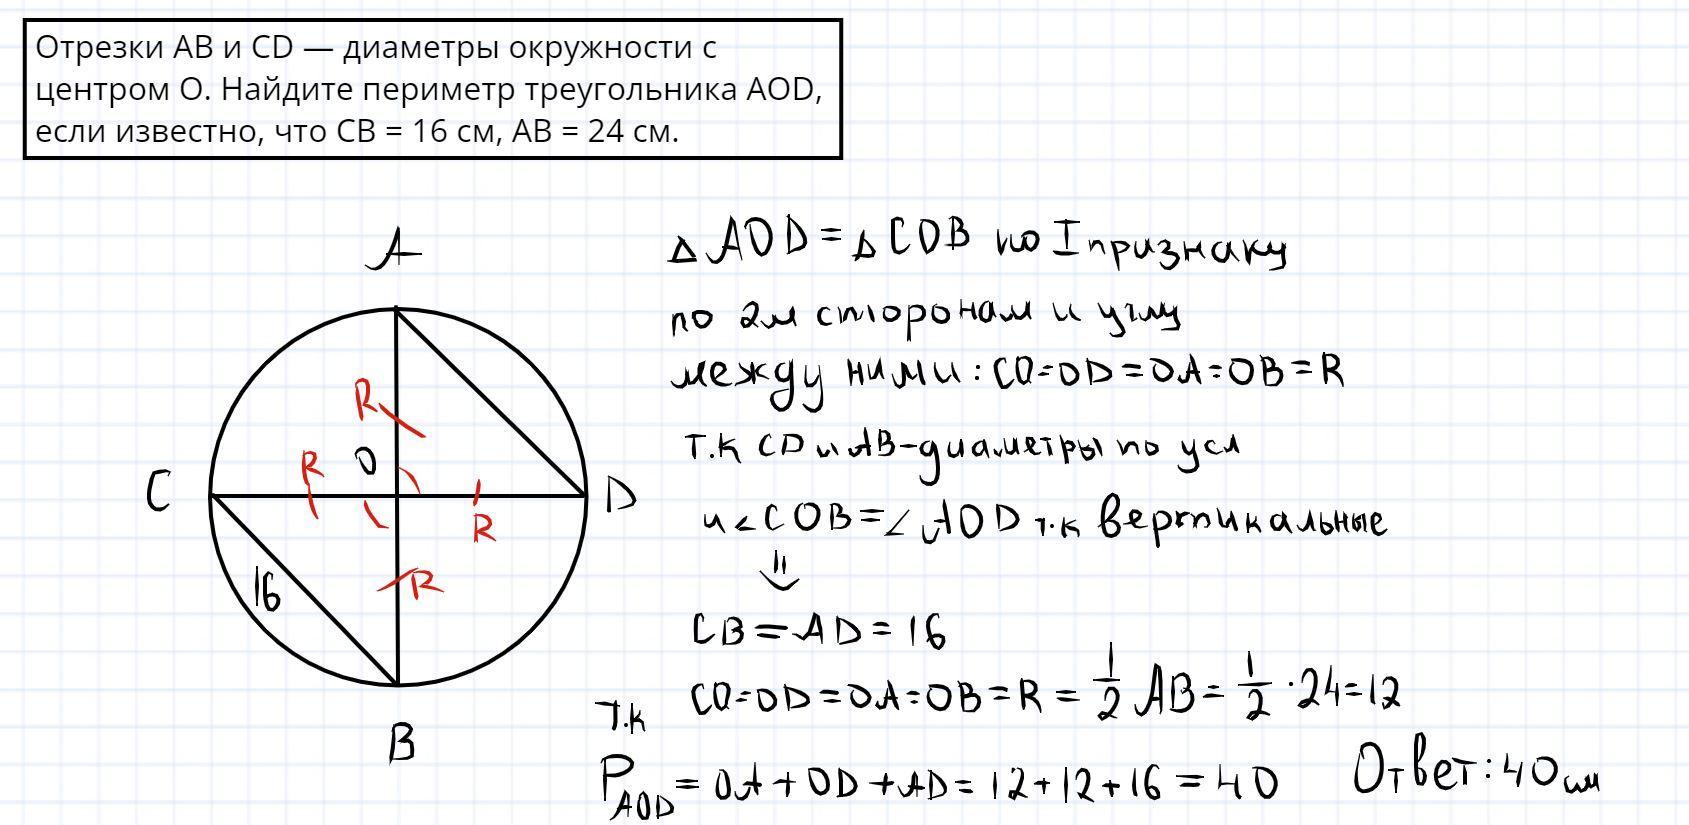 Отрезки AB и CD — диаметры окружности с
центром O. Найдите периметр треугольника AOD,
если известно, что CB = 16 см, AB = 24 см.
A
R
R
O
C
D
R
16
R
B
△AOD = △COB по I признаку
по 2м сторонам и углу
между ними: CO=OD=OA=OB=R
т.к CD и AB-диаметры по усл
и ∠COB=∠AOD т.к вертикальные
⇓
CB=AD=16
т.к CO=OD=OA=OB=R=1/2 AB=1/2·24=12
P AOD = OA+OD+AD=12+12+16=40 Ответ: 40 см